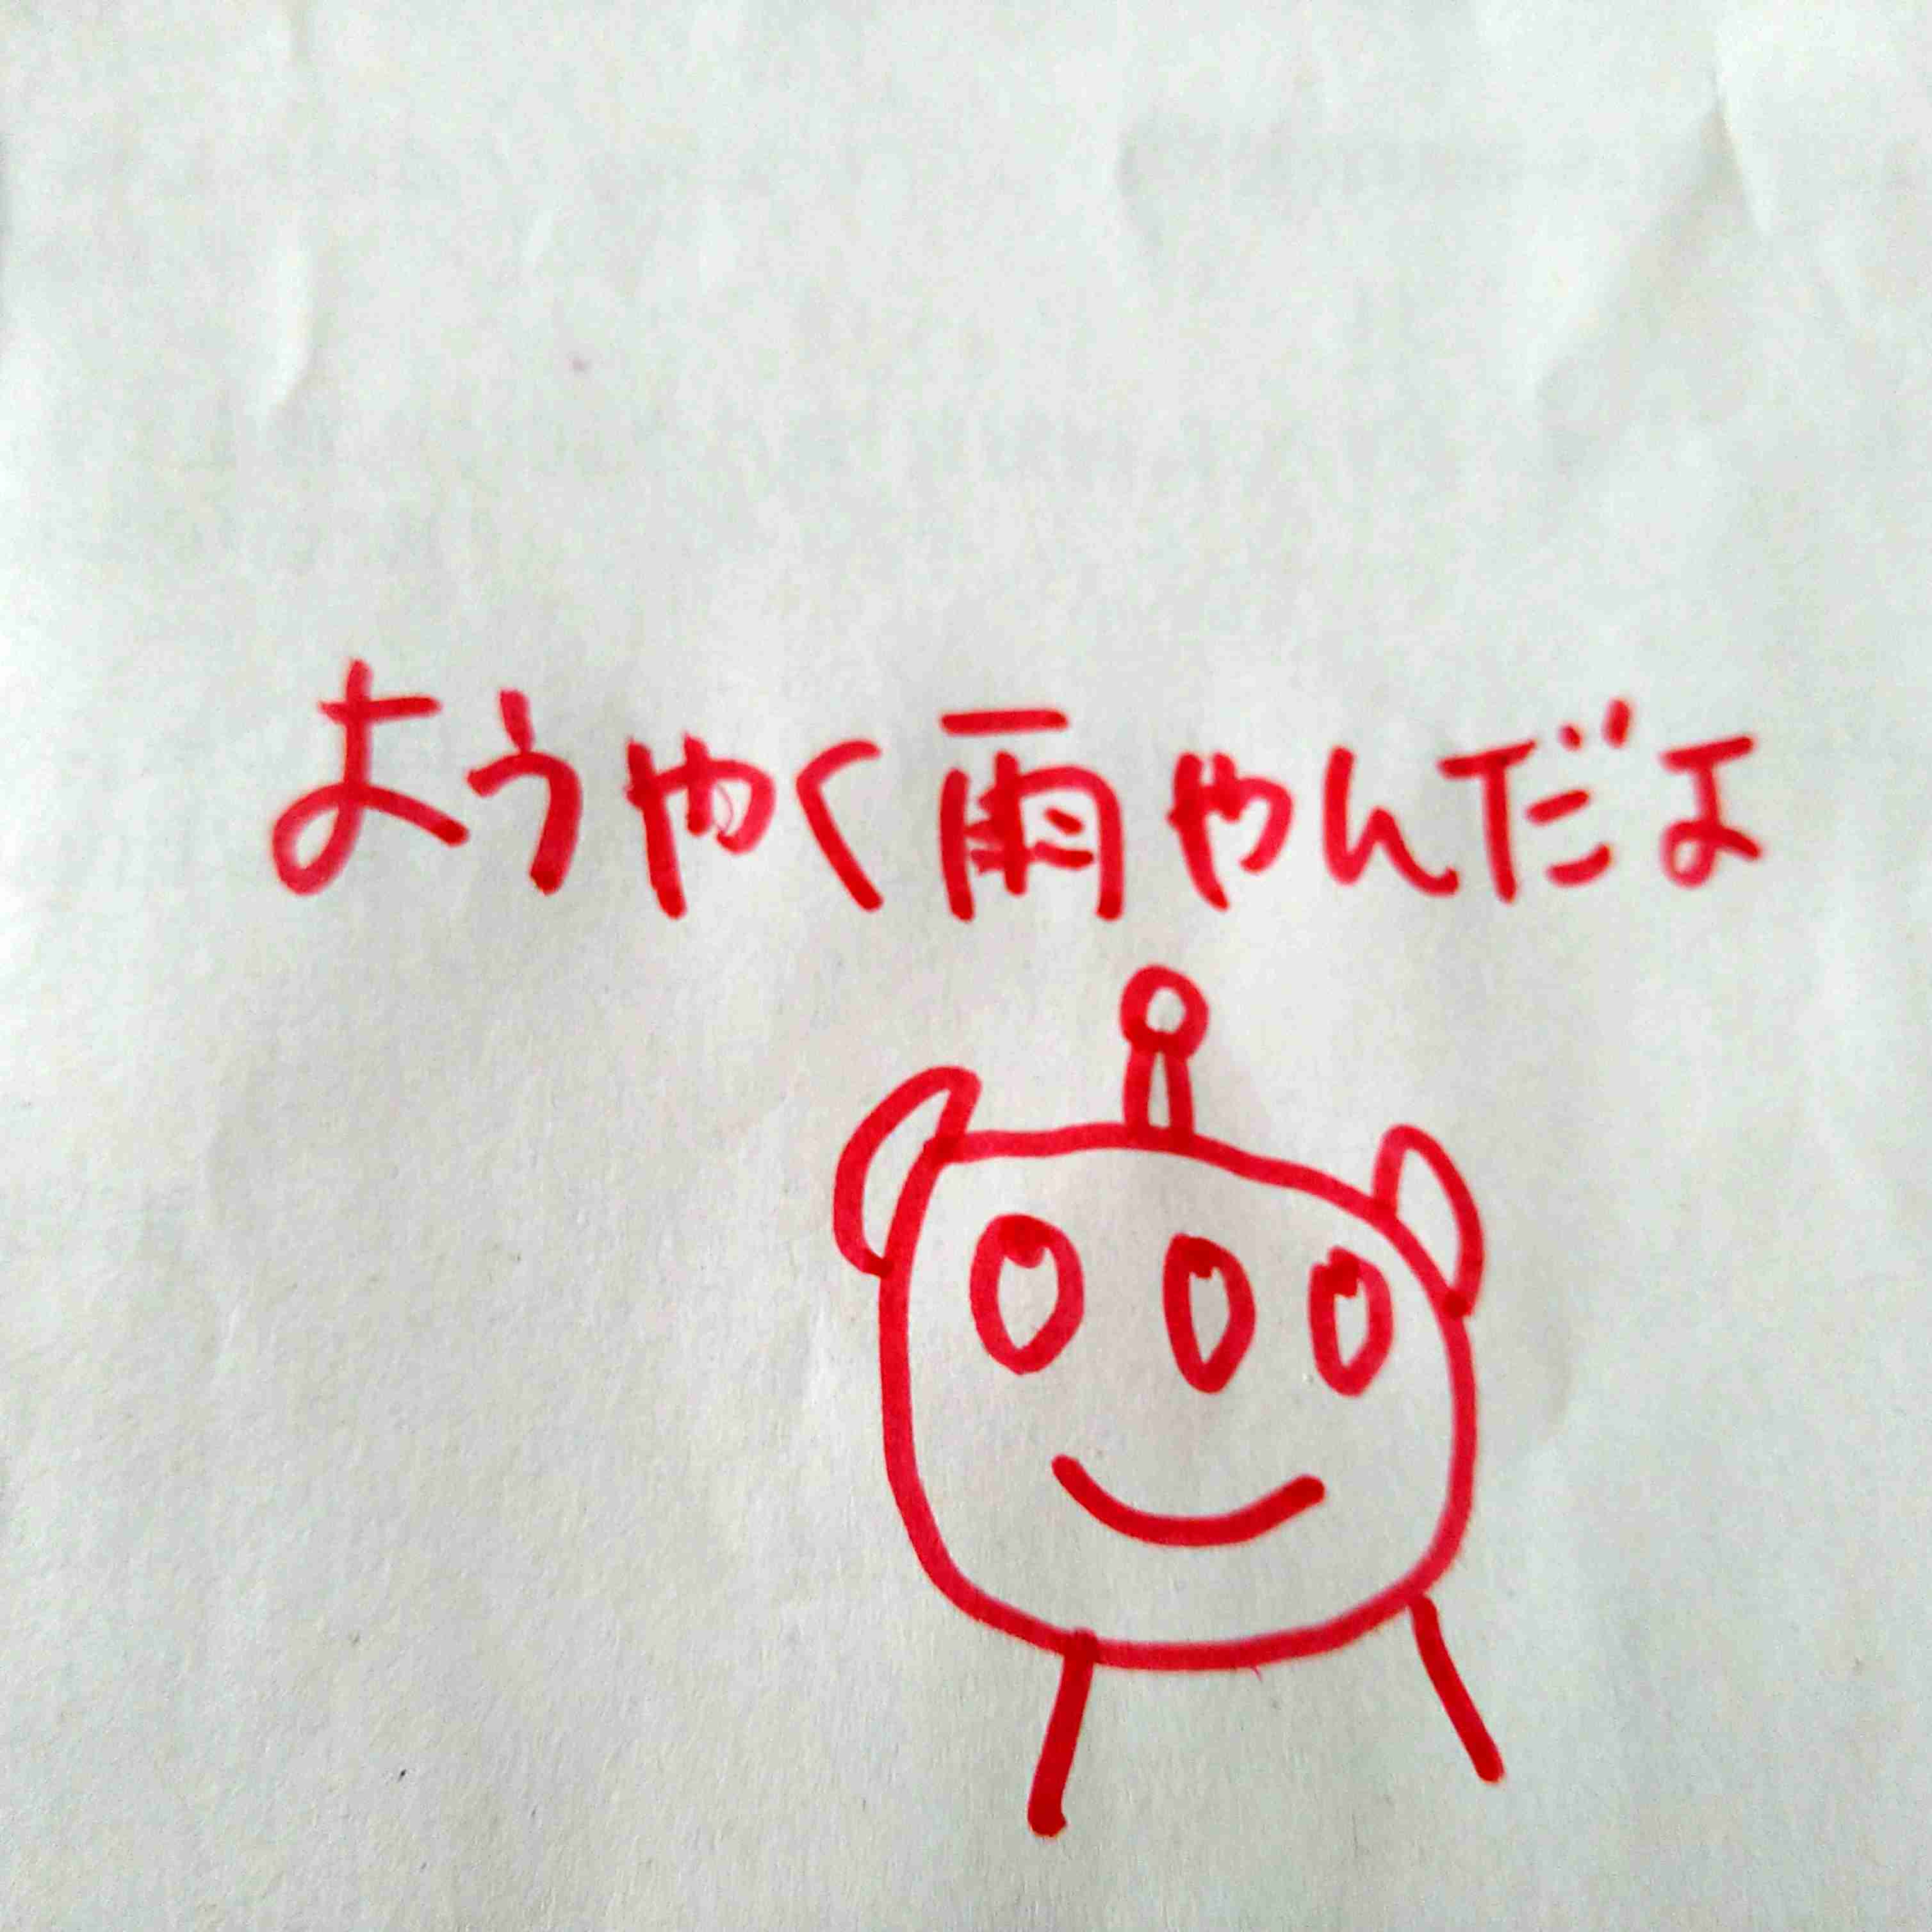 ようやく雨やんだよ